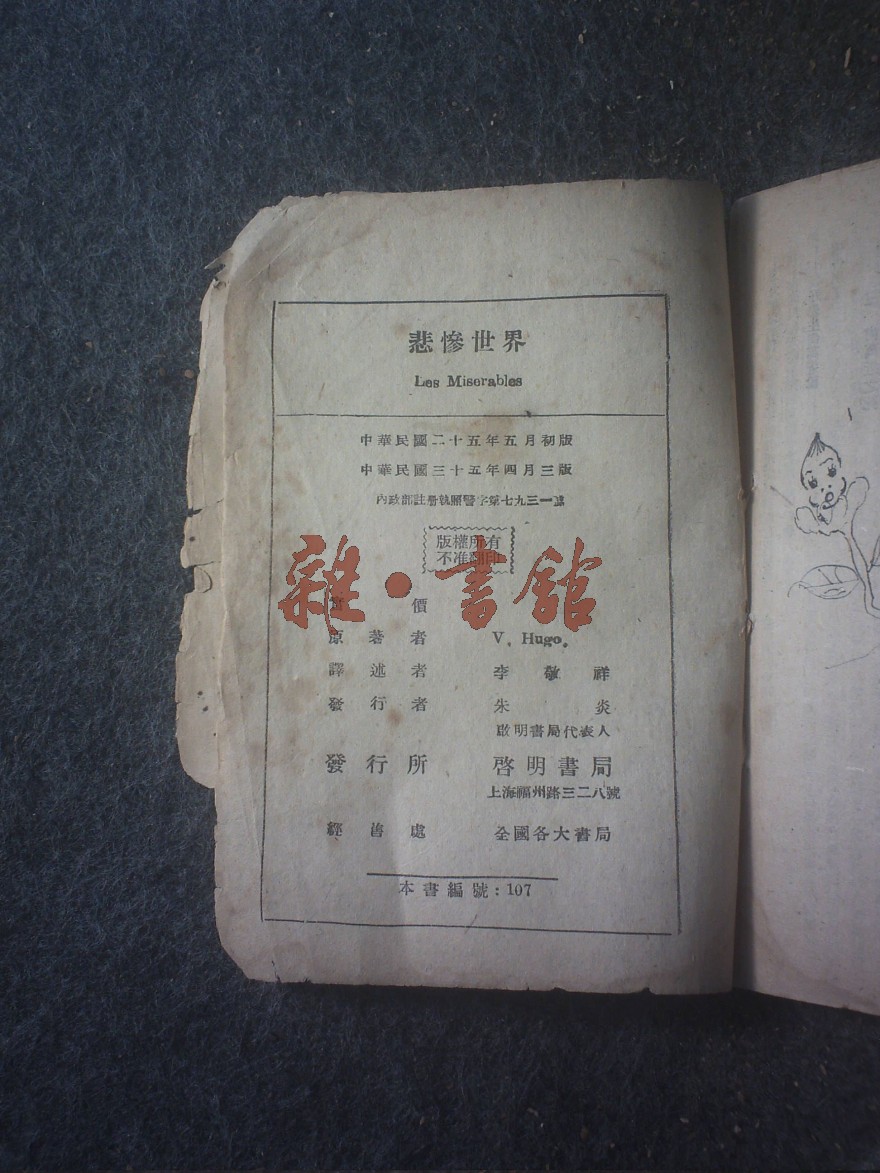 悲慘世界
Les Miserables
中華民國二十五年五月初版
中華民國三十五年四月三版
內政部註册執照警字第七九三一號
版權所有
不准翻印
雜·書館
實價
原著者 V. Hugo.
譯述者 李敬祥
發行者 朱炎
啟明書局代表人
發行所 啓明書局
上海福州路三二八號
經售處 全國各大書局
本書編號：107